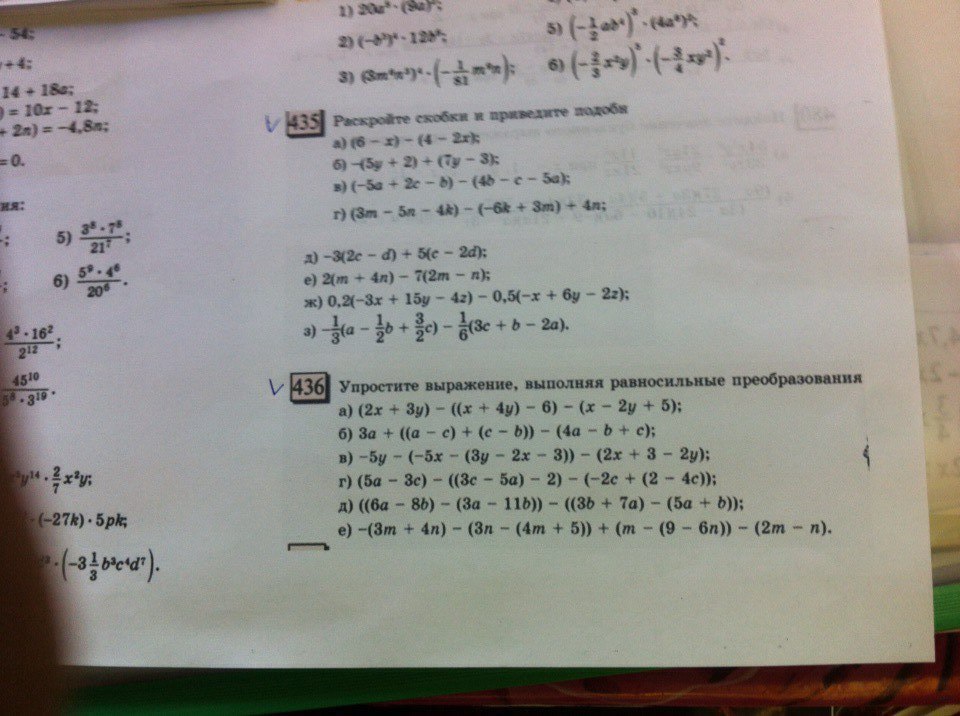 - 54;
+ 4;
14 + 18a;
) = 10x − 12;
+ 2n) = −4,8n;
= 0.
ия:
5) 3⁸ · 7⁸ / 21⁷;
6) 5⁹ · 4⁶ / 20⁶.
4³ · 16² / 2¹²;
45¹⁰ / 5⁸ · 3¹⁹.
y¹⁴ · 2/7 x²y;
· (−27k) · 5pk;
· (−3 1/3 b³c⁴d⁷).
1) 20a³ · (8a)²;
2) (−b³)⁴ · 12b³;
3) · (−1/81 m⁴n);
5) (−1/2 ab⁴)³ · (4a⁴)²;
6) (−2/3 x²y)³ · (−3/4 xy²)².
435 Раскройте скобки и приведите подобн
а) (6 − x) − (4 − 2x);
б) −(5y + 2) + (7y − 3);
в) (−5a + 2c − b) − (4b − c − 5a);
г) (3m − 5n − 4k) − (−6k + 3m) + 4n;
д) −3(2c − d) + 5(c − 2d);
е) 2(m + 4n) − 7(2m − n);
ж) 0,2(−3x + 15y − 4z) − 0,5(−x + 6y − 2z);
з) −1/3(a − 1/2b + 3/2c) − 1/6(3c + b − 2a).
436 Упростите выражение, выполняя равносильные преобразования
а) (2x + 3y) − ((x + 4y) − 6) − (x − 2y + 5);
б) 3a + ((a − c) + (c − b)) − (4a − b + c);
в) −5y − (−5x − (3y − 2x − 3)) − (2x + 3 − 2y);
г) (5a − 3c) − ((3c − 5a) − 2) − (−2c + (2 − 4c));
д) ((6a − 8b) − (3a − 11b)) − ((3b + 7a) − (5a + b));
е) −(3m + 4n) − (3n − (4m + 5)) + (m − (9 − 6n)) − (2m − n).